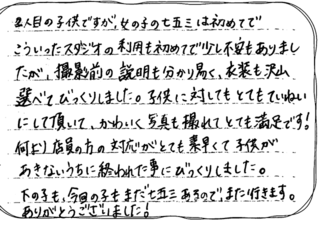 2人目の子供ですが、女の子の七五三は初めてで
こういったスタジオの利用も初めてで少し不安もありまし
たが、撮影前の説明も分かり易く、衣装も沢山
選べてびっくりしました。子供に対してもとてもていねい
にして頂いて、かわいく写真も撮れてとても満足です!
何より店員の方の対応がとても素早くて子供が
あきないうちに終われた事にびっくりしました。
下の子も、今回の子もまだ七五三あるので、また行きます。
ありがとうございました!